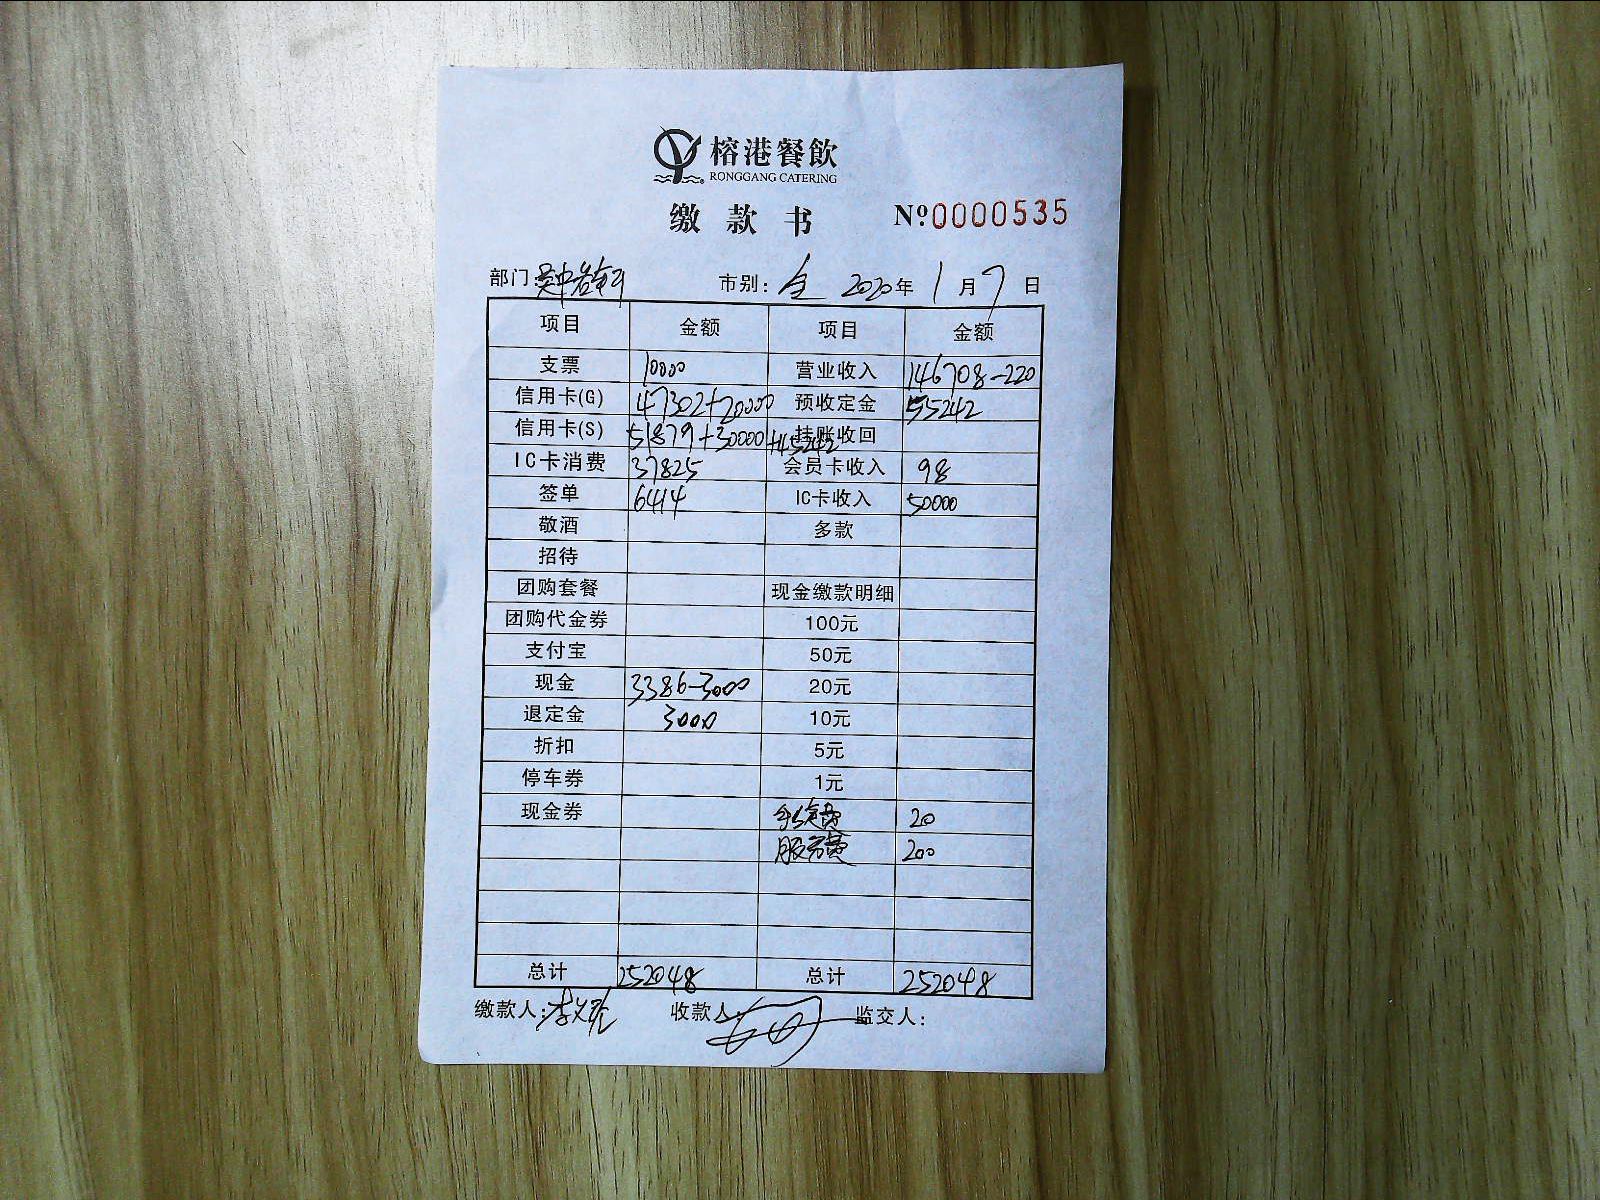 榕港餐飲
RONGGANG CATERING
缴款书 Nº0000535
部门: 市别: 全 2020年1月7日
项目 金额 项目 金额
支票 10000 营业收入 146708-220
信用卡(G) 47302+20000 预收定金 55242
信用卡(S) 51879+30000+45242 挂账收回
IC卡消费 37825 会员卡收入 98
签单 6414 IC卡收入 50000
敬酒 多款
招待
团购套餐 现金缴款明细
团购代金券 100元
支付宝 50元
现金 3386-3000 20元
退定金 3000 10元
折扣 5元
停车券 1元
现金券 20
服务费 200
总计 252048 总计 252048
缴款人: 收款人: 监交人: